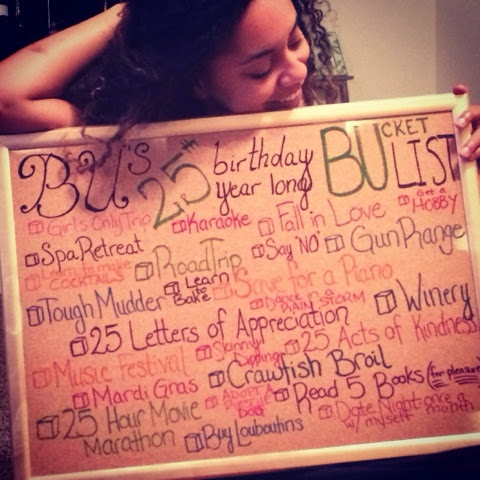 BU'S 25th birthday year long BUCKET LIST
Girls Only Trip Karaoke Fall in Love Get a HOBBY
Spa Retreat Road Trip Say 'NO' Gun Range
Learn to make COCKTAILS Learn to Bake Save for a Piano
Tough Mudder Dance in a RAIN STORM Winery
25 Letters of Appreciation
Music Festival Skinny Dipping 25 Acts of Kindness
Crawfish Broil
Mardi Gras Adopt a Rescue Dog Read 5 Books (for pleasure)
25 Hour Movie Marathon Buy Louboutins Date Night once a month w/ myself